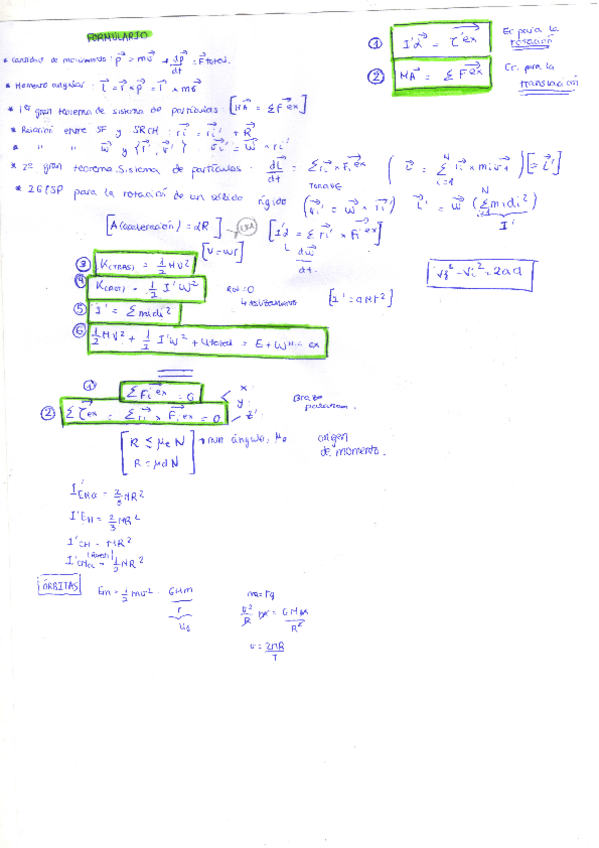 FORMULARIO
① I'α⃗ = τ⃗'ex Ec para la rotación
② MA⃗ = ΣF⃗ex Ec. para la translación
* Cantidad de movimiento: p⃗ = mv⃗ * dp⃗/dt = F⃗total.
* Momento angular: L⃗ = r⃗ × p⃗ = r⃗ × mv⃗
* 1er gran teorema de sistema de partículas: [MA⃗ = ΣF⃗ex]
* Relación entre SF y SRCM: r⃗i = r⃗i' + R⃗
* " " w⃗ y {r⃗', v⃗'} v⃗i' = w⃗ × r⃗i'
* 2º gran teorema. Sistema de partículas: dL⃗/dt = Σr⃗i × F⃗i ex
TORQUE
* 2GTSP para la rotación de un sólido rígido (v⃗i' = w⃗ × r⃗i') L⃗' = w⃗ (Σmidi²)
I'
[A(aceleración) = αR] [I'α⃗ = Σr⃗i' × F⃗i ex]
dw⃗/dt
[V = wr]
③ K(TRAS) = 1/2 MV²
④ K(ROT) = 1/2 I'W²
[I' = aMr²]
Vf² - Vi² = 2ad
⑤ I' = Σmidi²
⑥ 1/2 MV² + 1/2 I'W² + Utotal = E + W ex
① ΣF⃗i ex = 0
x
y
② Στ⃗ex = Σr⃗i × F⃗i ex = 0
z
Brazo
R ≤ μe N
R = μd N
origen de momento.
MR²
I'EH = 2/3 MR²
I'CH = MR²
1/2 MR²
ÓRBITAS Em = 1/2 mv² - GMm/r
Ug
v²/R m = GMm/R²
v = 2πR/T